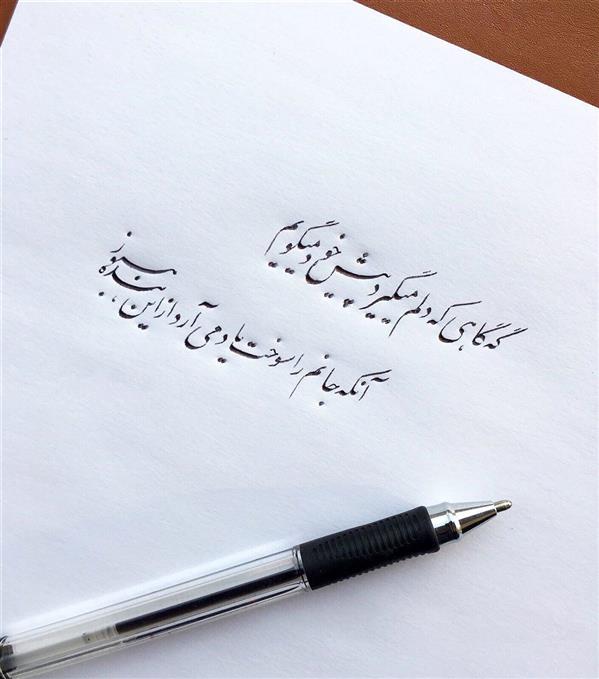 گه گاهی که دلم میگیرد پیش خود میگویم
آنکه جانم را سوخت یاد می آرد از این بنده هنوز